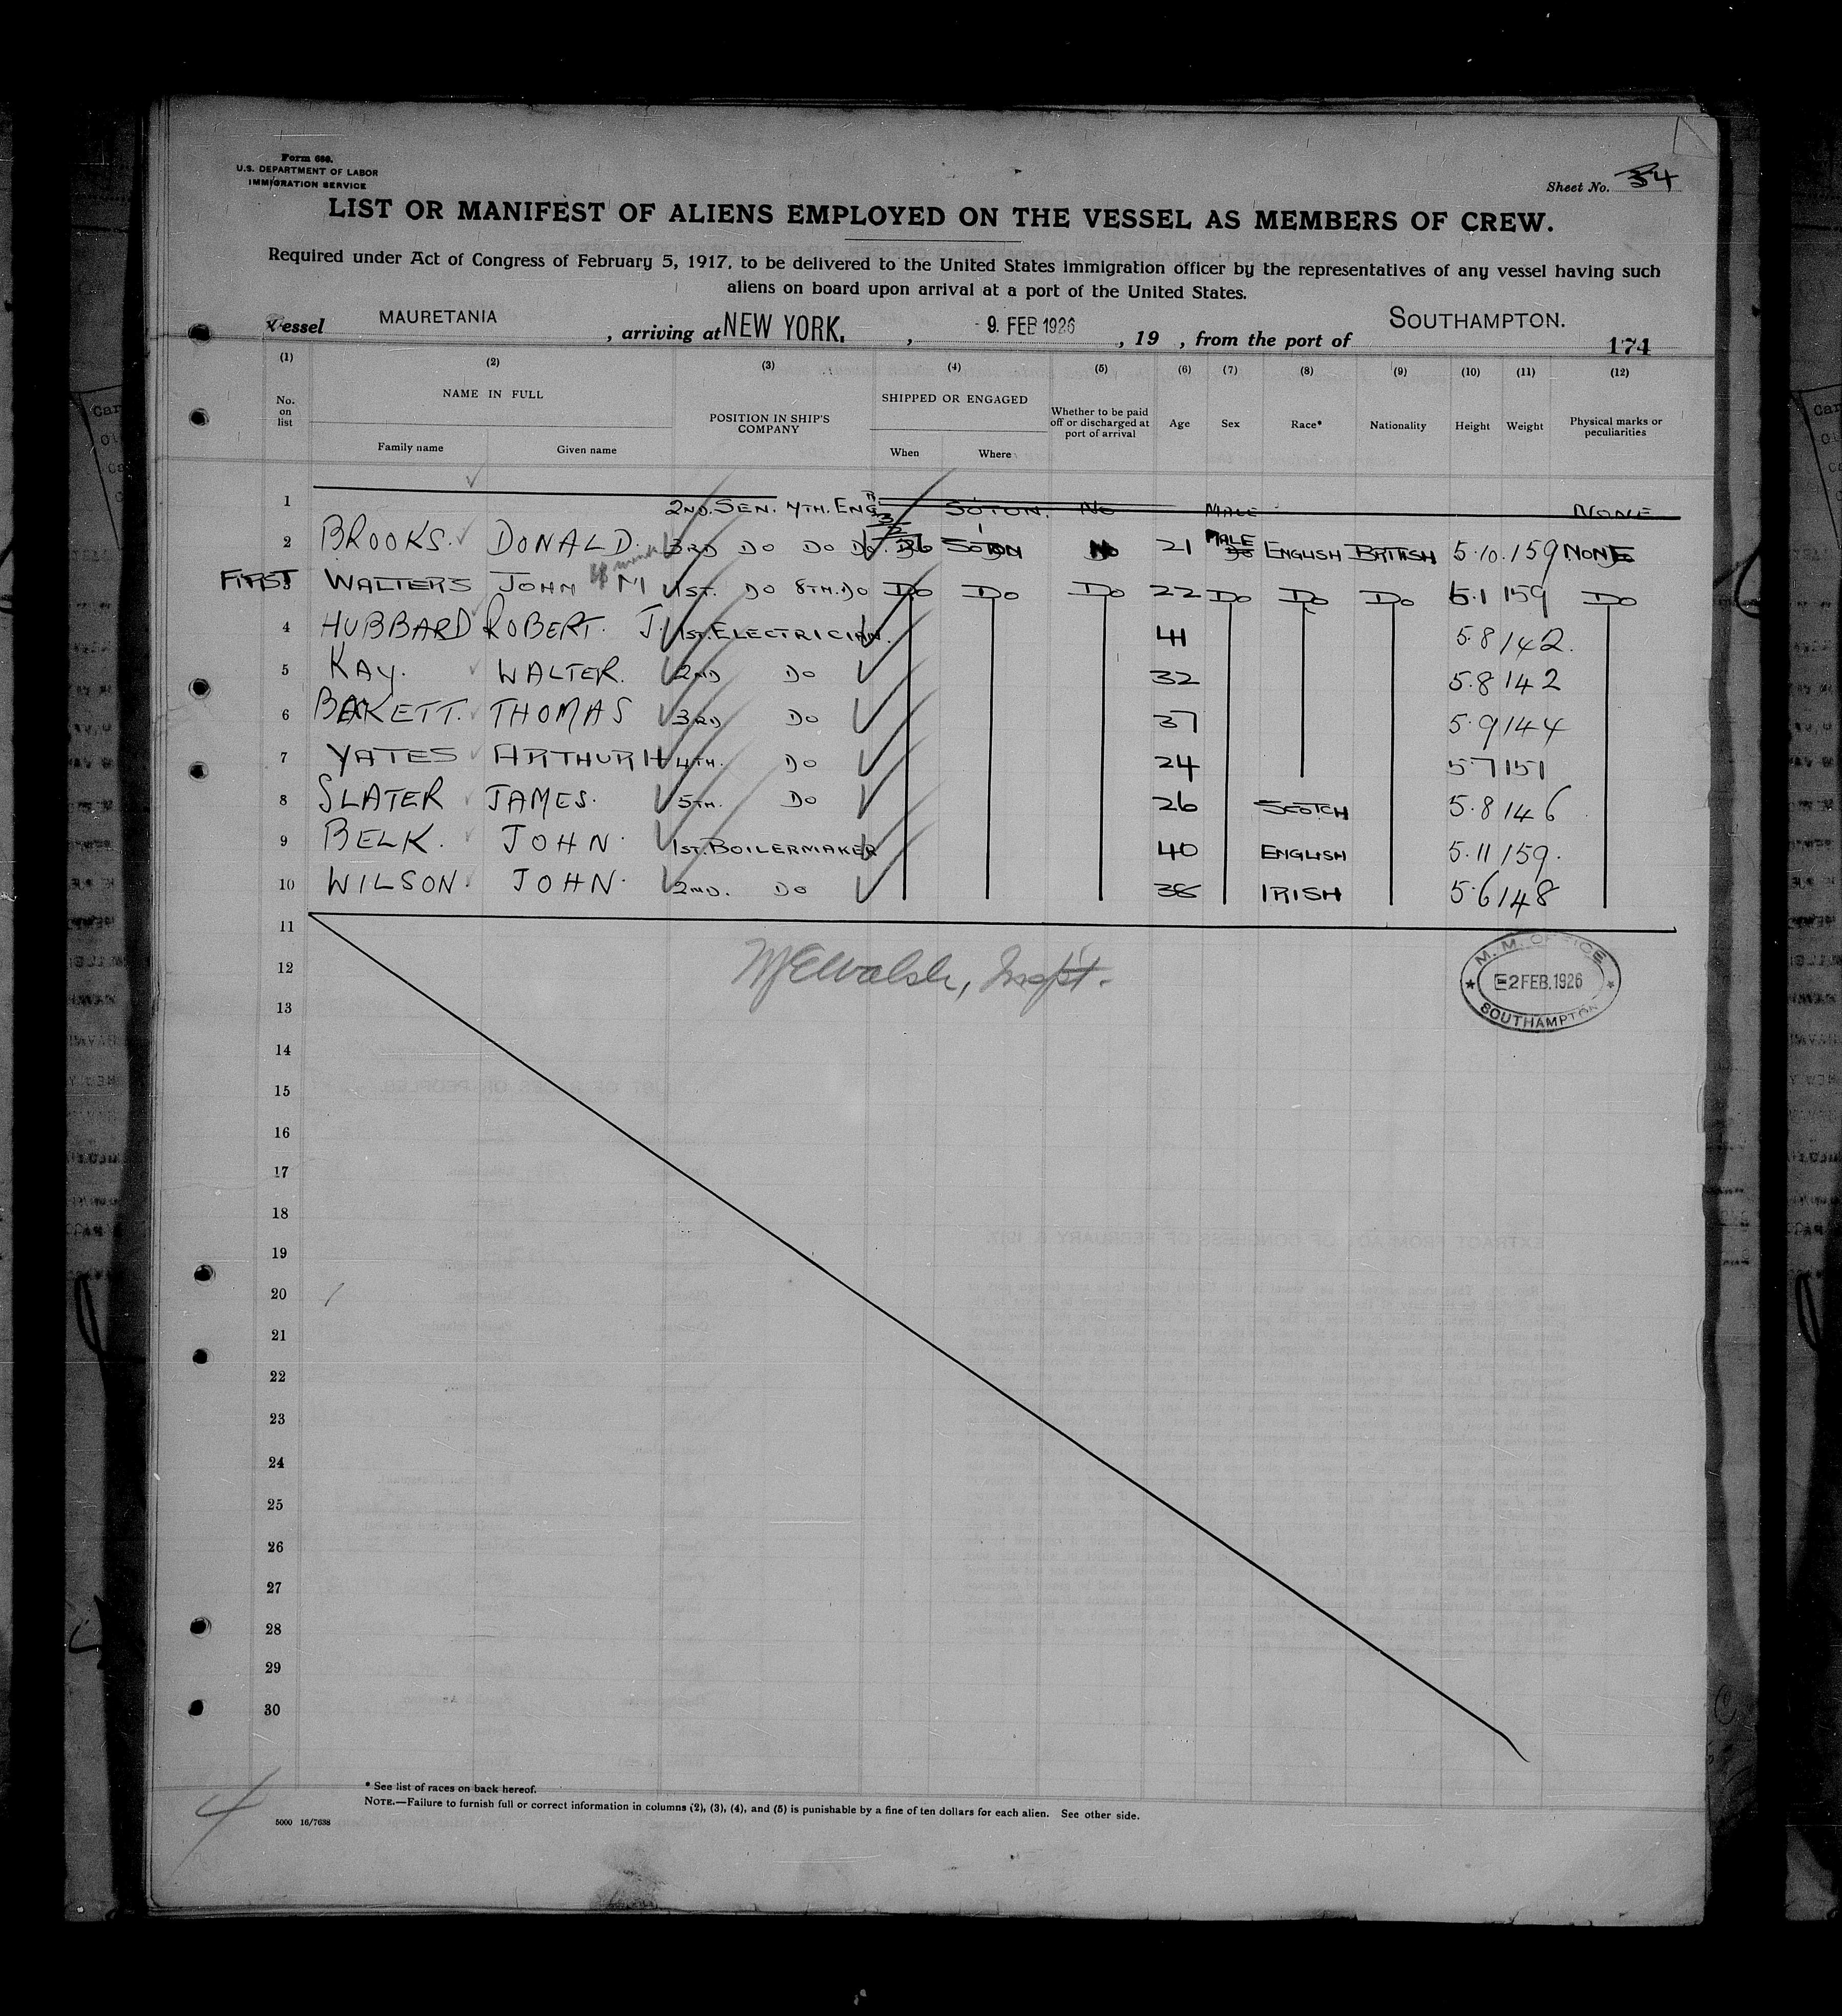 Form 686.
U.S. DEPARTMENT OF LABOR
IMMIGRATION SERVICE
Sheet No. 4
LIST OR MANIFEST OF ALIENS EMPLOYED ON THE VESSEL AS MEMBERS OF CREW.
Required under Act of Congress of February 5, 1917, to be delivered to the United States immigration officer by the representatives of any vessel having such
aliens on board upon arrival at a port of the United States.
Vessel MAURETANIA, arriving at NEW YORK, - 9. FEB 1926, 19 , from the port of SOUTHAMPTON.
174
(1) (2) (3) (4) (5) (6) (7) (8) (9) (10) (11) (12)
No. on list NAME IN FULL Family name Given name POSITION IN SHIP'S COMPANY SHIPPED OR ENGAGED When Where Whether to be paid off or discharged at port of arrival Age Sex Race* Nationality Height Weight Physical marks or peculiarities
1 2ND. SEN. 7TH. ENGR SOTON. NO MALE NONE
2 BROOKS. DONALD. 3RD DO DO DO. 26 SOTON NO 21 MALE ENGLISH BRITISH 5.10. 159 NONE
FIRST WALTERS JOHN M 1ST. DO 8TH. DO DO DO DO 22 DO DO DO 5.1 159 DO
4 HUBBARD ROBERT. J. 1ST. ELECTRICIAN. 41 5.8 142.
5 KAY. WALTER. 2ND DO 32 5.8 142
6 BAKETT. THOMAS 3RD DO 37 5.9 144
7 YATES ARTHUR H 4TH. DO 24 5.7 151
8 SLATER JAMES. 5TH. DO 26 SCOTCH 5.8 146
9 BELK. JOHN. 1ST. BOILERMAKER 40 ENGLISH 5.11 159.
10 WILSON. JOHN. 2ND. DO 38 IRISH 5.6 148
11
12 Walsh, Inspt.
M. M. OFFICE
E 2 FEB. 1926
SOUTHAMPTON
13
14
15
16
17
18
19
20
21
22
23
24
25
26
27
28
29
30
* See list of races on back hereof.
NOTE.—Failure to furnish full or correct information in columns (2), (3), (4), and (5) is punishable by a fine of ten dollars for each alien. See other side.
5000 16/7638
4